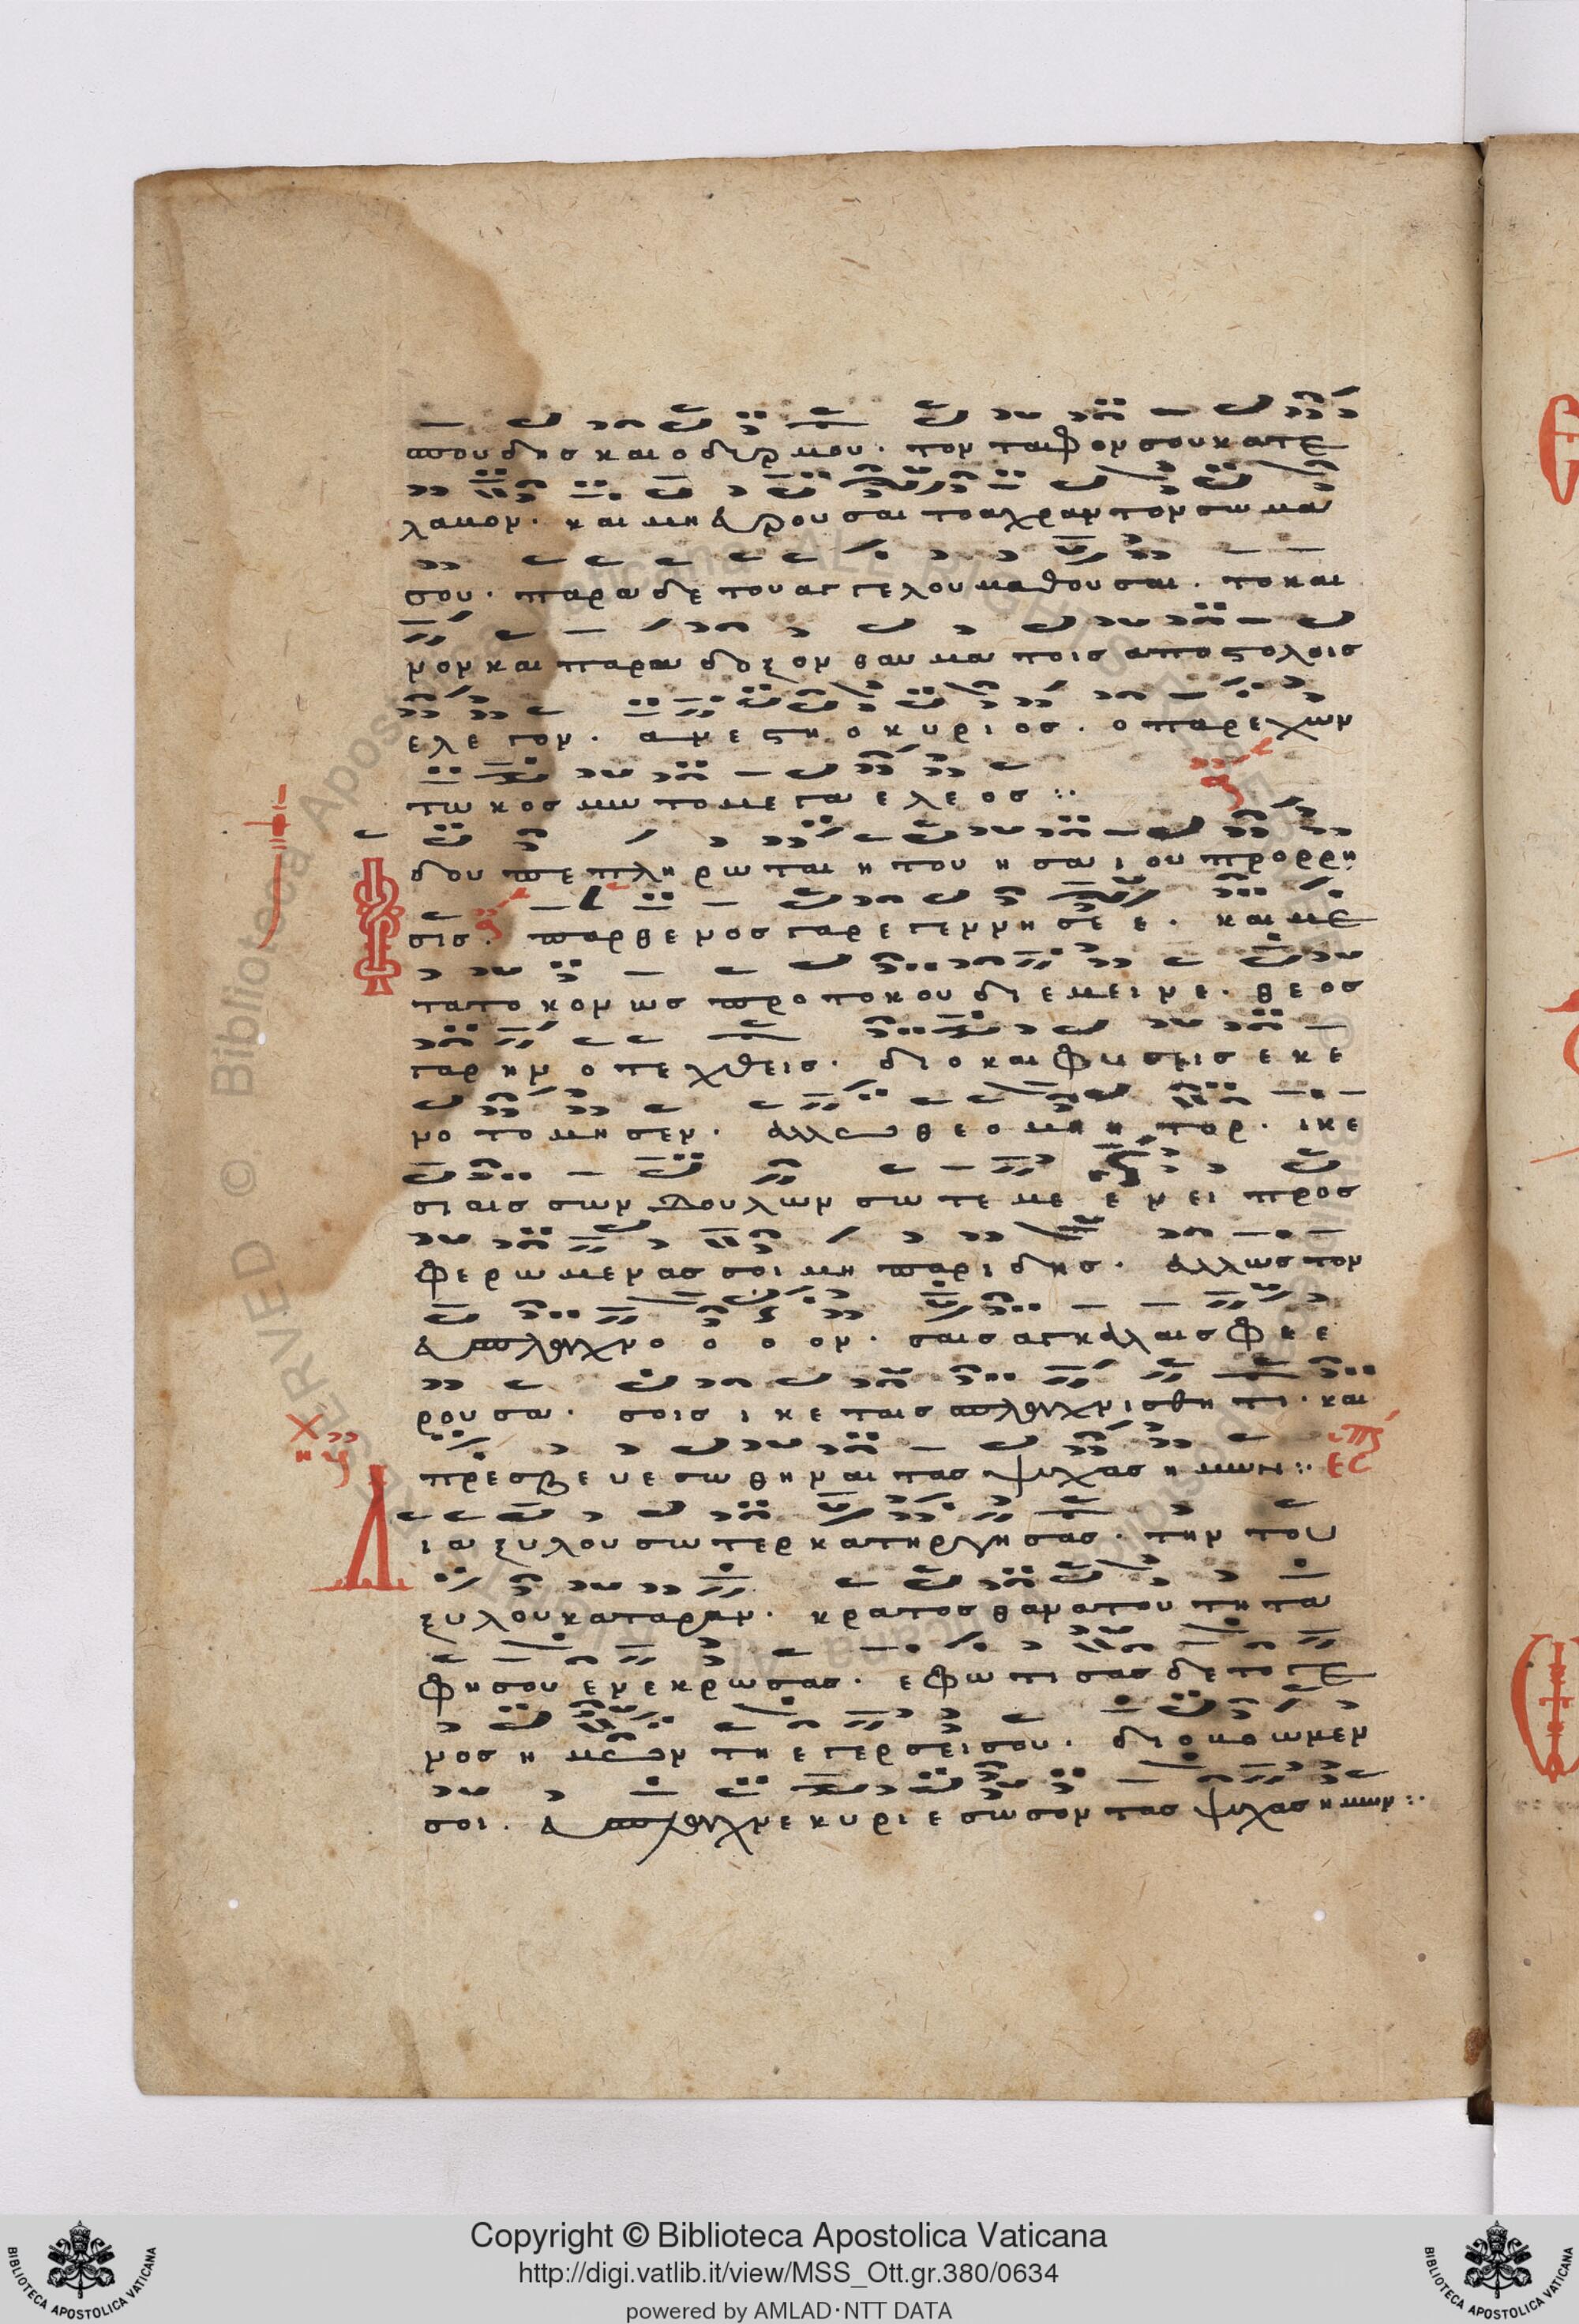 πουδησ και οδυρμου · τον ταφον σου κατε
λαβον · και μη ευρουσαι το αχραντον σωμα
σου · παρα δε του αγγελου μαθουσαι · το και
νον και παραδοξον θαυμα τοις αποστολοις
ελεγον · ανεστη ο κυριος · ο παρεχων
τω κοσμω το μεγα ελεος :·
δου πεπληρωται η του ησαιου προρρη
σις · παρθενος γαρ εγεννησε ε · και με
τα τοκον ως προ τοκου διεμεινε · θεος
γαρ ην ο τεχθεις · διο και φυσεις εκε
νοτομησεν · αλλ ω θεομηητορ · ικε
σιας σων δουλων σω τεμε ε νει προς
φερωμενας σοι μη παριδης · αλλ ως τον
ευσπλαγχνο ο ο ον · σαις αγκαλαις φε ε
ρουσα · σοις ικεταις σπλαγχνισθητι · και
πρεσβευε σωθηναι τας ψυχας ημων :·
Δια ξυλου σωτερ κατηργησας · την του
ξυλου καταραν · κρατος θανατου τη τα
φη σου ενεκρωσας · εφωτισας δε το γε
νος ημων τη εγερσει σου · διο βοωμεν
σοι · ευσπλαγχνε κυριε σωσον τας ψυχας ημων :·
Copyright © Biblioteca Apostolica Vaticana
http://digi.vatlib.it/view/MSS_Ott.gr.380/0634
powered by AMLAD·NTT DATA
BIBLIOTECA APOSTOLICA VATICANA
BIBLIOTECA APOSTOLICA VATICANA